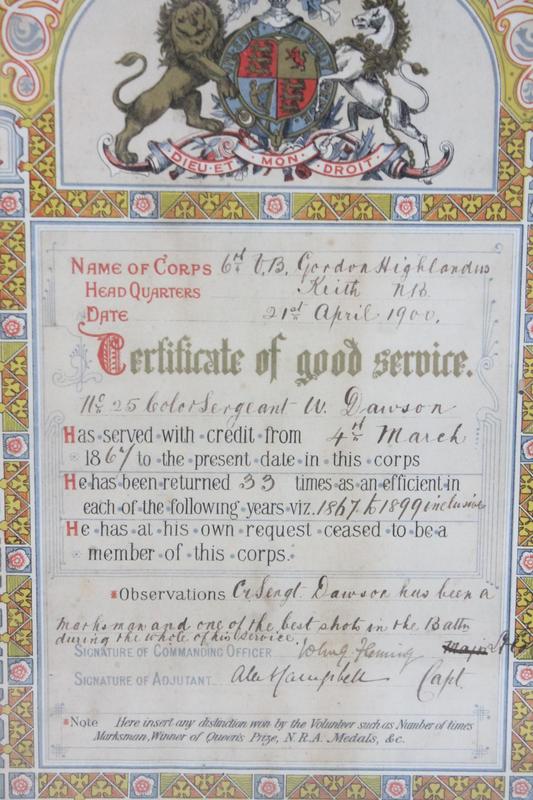 DIEU·ET·MON·DROIT·
NAME OF CORPS 6rd V.B. Gordon Highlanders
HEAD QUARTERS Keith N.B.
DATE 21st April 1900.
Certificate of good service.
No 25 Color Sergeant W. Dawson
Has served with credit from 4rd March
1867 to the present date in this corps
He has been returned 33 times as an efficient in
each of the following years viz. 1867 to 1899 inclusive
He has at his own request ceased to be a
member of this corps.
*Observations Cr Sergt Dawson has been a
marksman and one of the best shots in the Battn
during the whole of his service.
SIGNATURE OF COMMANDING OFFICER John G Fleming Major
SIGNATURE OF ADJUTANT Alex Campbell Capt.
*Note Here insert any distinction won by the Volunteer such as Number of times
Marksman, Winner of Queen's Prize, N.R.A. Medals, &c.